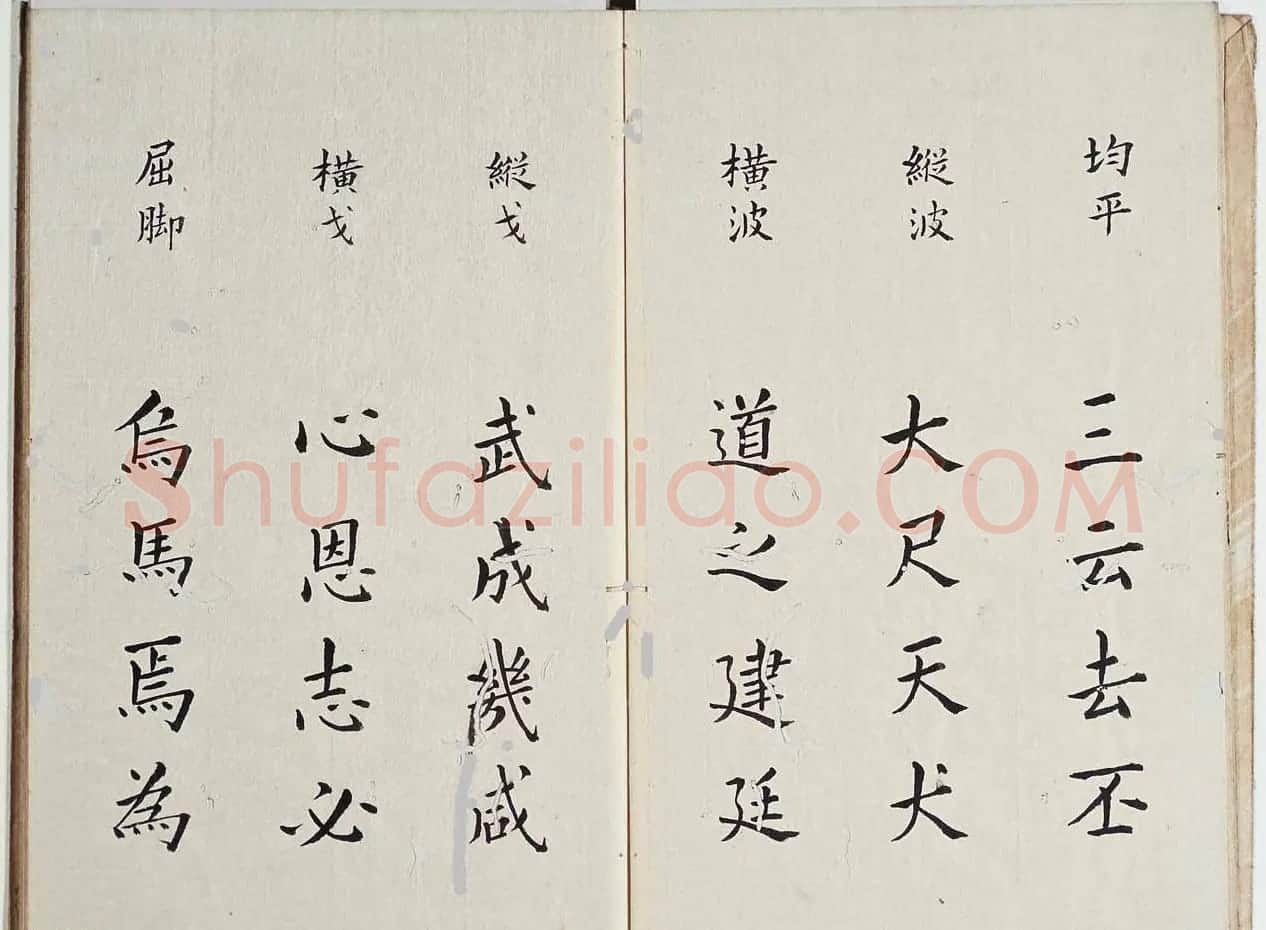 均平
三云去丕
縦波
大尺天犬
横波
道之建延
縦戈
武成幾咸
横戈
心恩志必
屈脚
烏馬焉為
Shufaziliao.COM